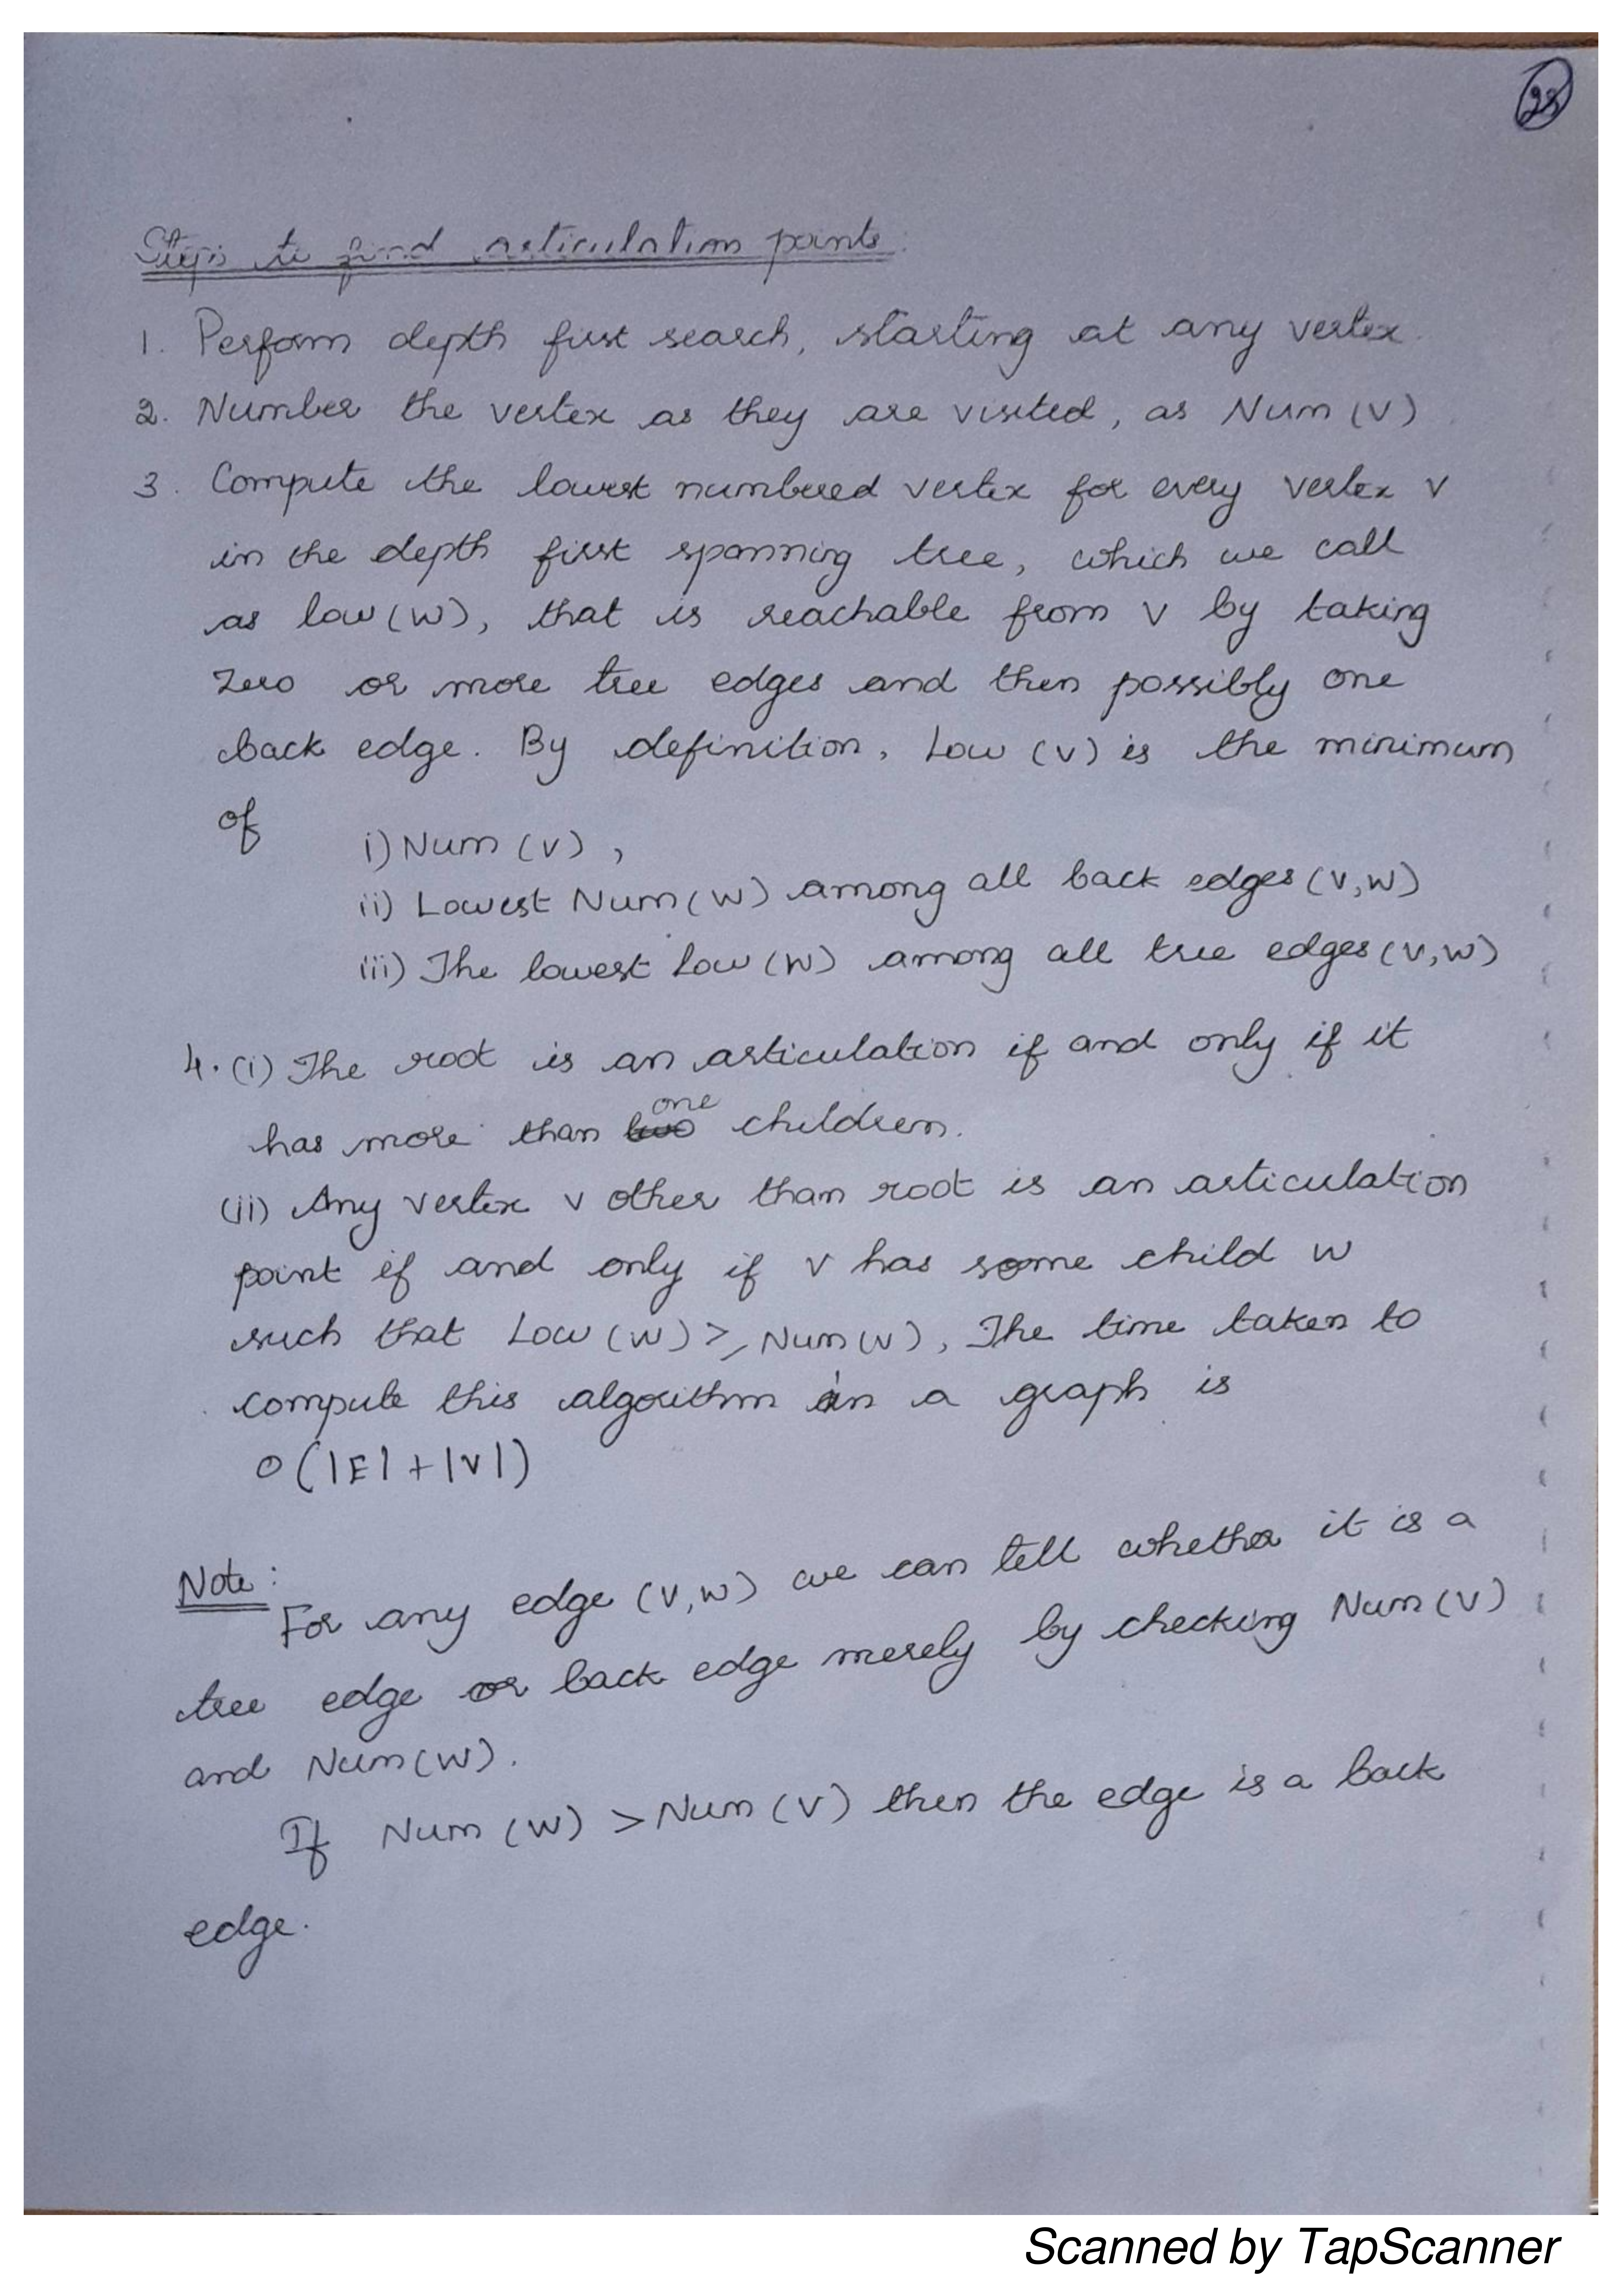 28
Steps to find articulation points.
1. Perform depth first search, starting at any vertex.
2. Number the vertex as they are visited, as Num (V)
3. Compute the lowest numbered vertex for every vertex v
in the depth first spanning tree, which we call
as low (w), that is reachable from v by taking
zero or more tree edges and then possibly one
back edge. By definition, Low (v) is the minimum
of
i) Num (v),
ii) Lowest Num (w) among all back edges (v,w)
iii) The lowest Low (w) among all tree edges (v,w)
4. (i) The root is an articulation if and only if it
one
has more than two children.
(ii) Any vertex v other than root is an articulation
point if and only if v has some child w
such that Low (w) ≥ Num (v), The time taken to
compute this algorithm in a graph is
O (|E| + |V|)
Note:
For any edge (v,w) we can tell whether it is a
tree edge or back edge merely by checking Num (v)
and Num (w).
If Num (w) > Num (v) then the edge is a back
edge.
Scanned by TapScanner